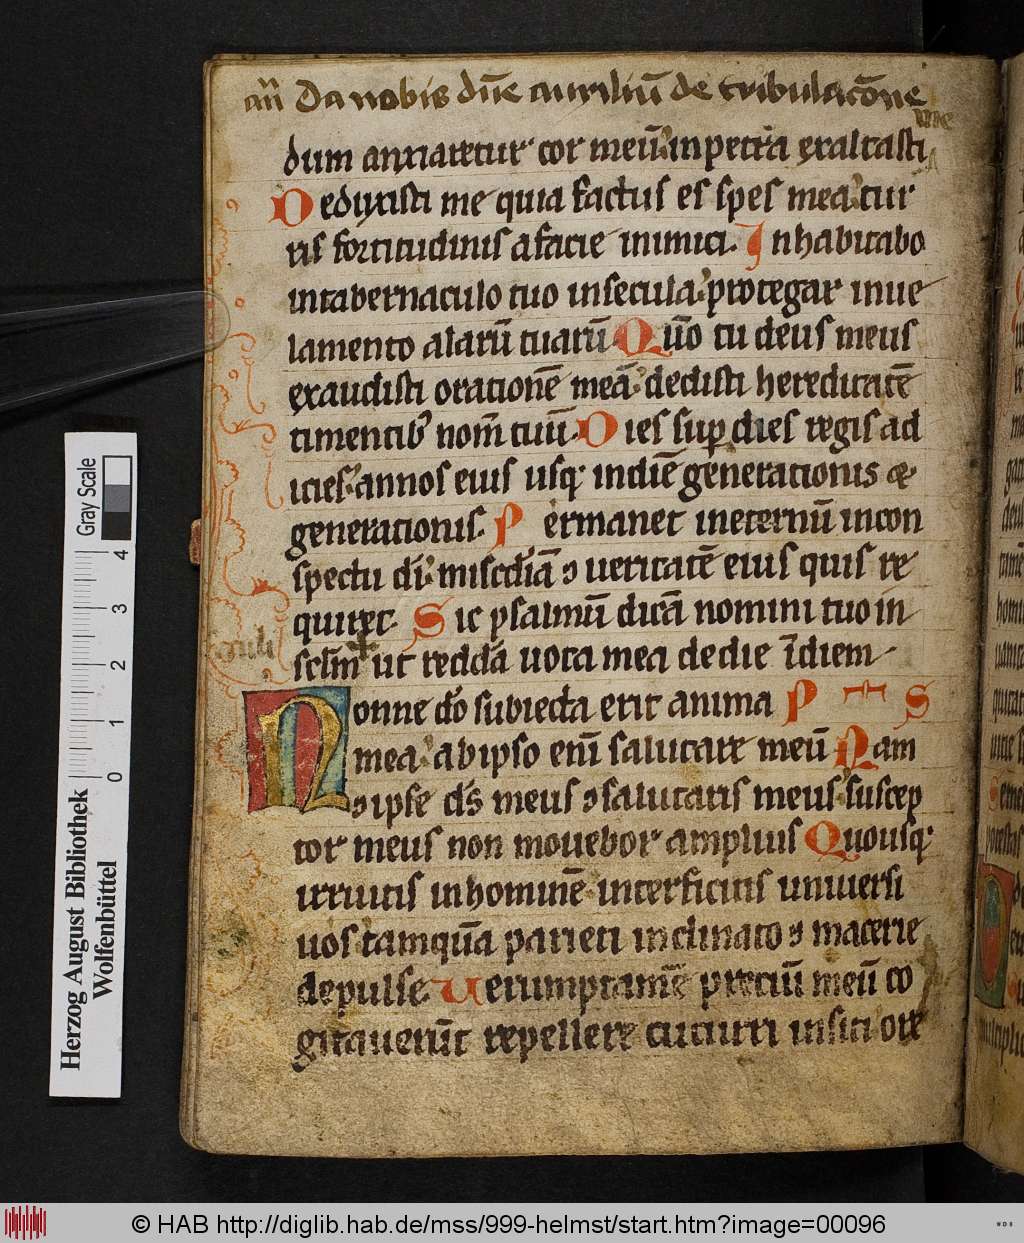 an̄ Da nobis dn̄e auxiliū de tribulac̄one
dum anxiaretur cor meū in petra exaltasti
Deduxisti me quia factus es spes mea tur
ris fortitudinis a facie inimici. Inhabitabo
in tabernaculo tuo in secula protegar in ue
lamento alarū tuarū Qūo tu deus meus
exaudisti orationē meā dedisti hereditatē
timentib; nom̄ tuū. Dies sup dies regis ad
icies annos eius usq; in diē generationis et
generationis. Permanet in eternū in con
spectu di misc̄diā ɔ ueritatē eius quis re
quiret. Sic psalmū dicā nomini tuo in
scl̄m ut reddā uota mea de die ī diem
Nonne dō subiecta erit anima PS
mea ab ipso enī salutare meū Nam
ɔ ipse ds̄ meus ɔ salutaris meus suscep
tor meus non mouebor amplius Quousq;
irruitis in hominē interficitis uniuersi
uos tamquā parieti inclinato ɔ macerie
depulse. Uerumptamē preciū meū co
gitauerūt repellere cucurri in siti ore
Herzog August Bibliothek
Wolfenbüttel
0 1 2 3 4
Gray Scale
© HAB http://diglib.hab.de/mss/999-helmst/start.htm?image=00096